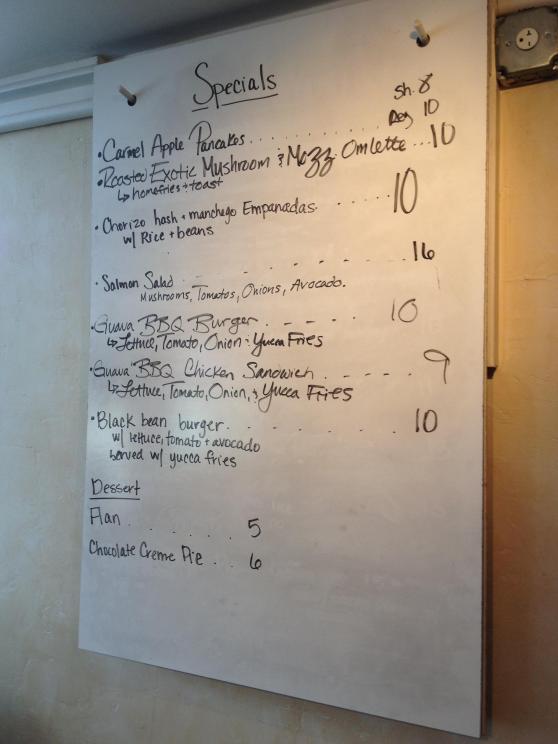 Specials
Sh. 8
• Carmel Apple Pancakes . . . . . . . . . . . . . Reg 10
• Roasted Exotic Mushroom & Mozz. Omlette ... 10
↳ homefries + toast
• Chorizo hash + manchego Empanadas. . . . . . . 10
w/ Rice + beans
• Salmon Salad - - - - - . . . 16
Mushrooms, Tomatos, Onions, Avocado.
• Guava BBQ Burger - - - - - 10
↳ Lettuce, Tomato, Onion & Yucca Fries
• Guava BBQ Chicken Sandwich - - - - - 9
↳ Lettuce, Tomato, Onion, & Yucca Fries
• Black bean burger. . - - - - - 10
w/ lettuce, tomato + avocado
served w/ yucca fries
Dessert
Flan . . . . . . . 5
Chocolate Creme Pie . . 6